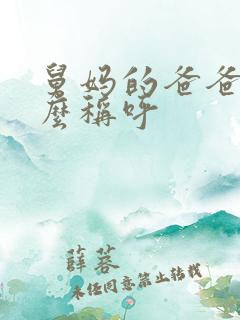 舅妈的爸爸
麽稱呼
薛蓉
未经同意禁止转载